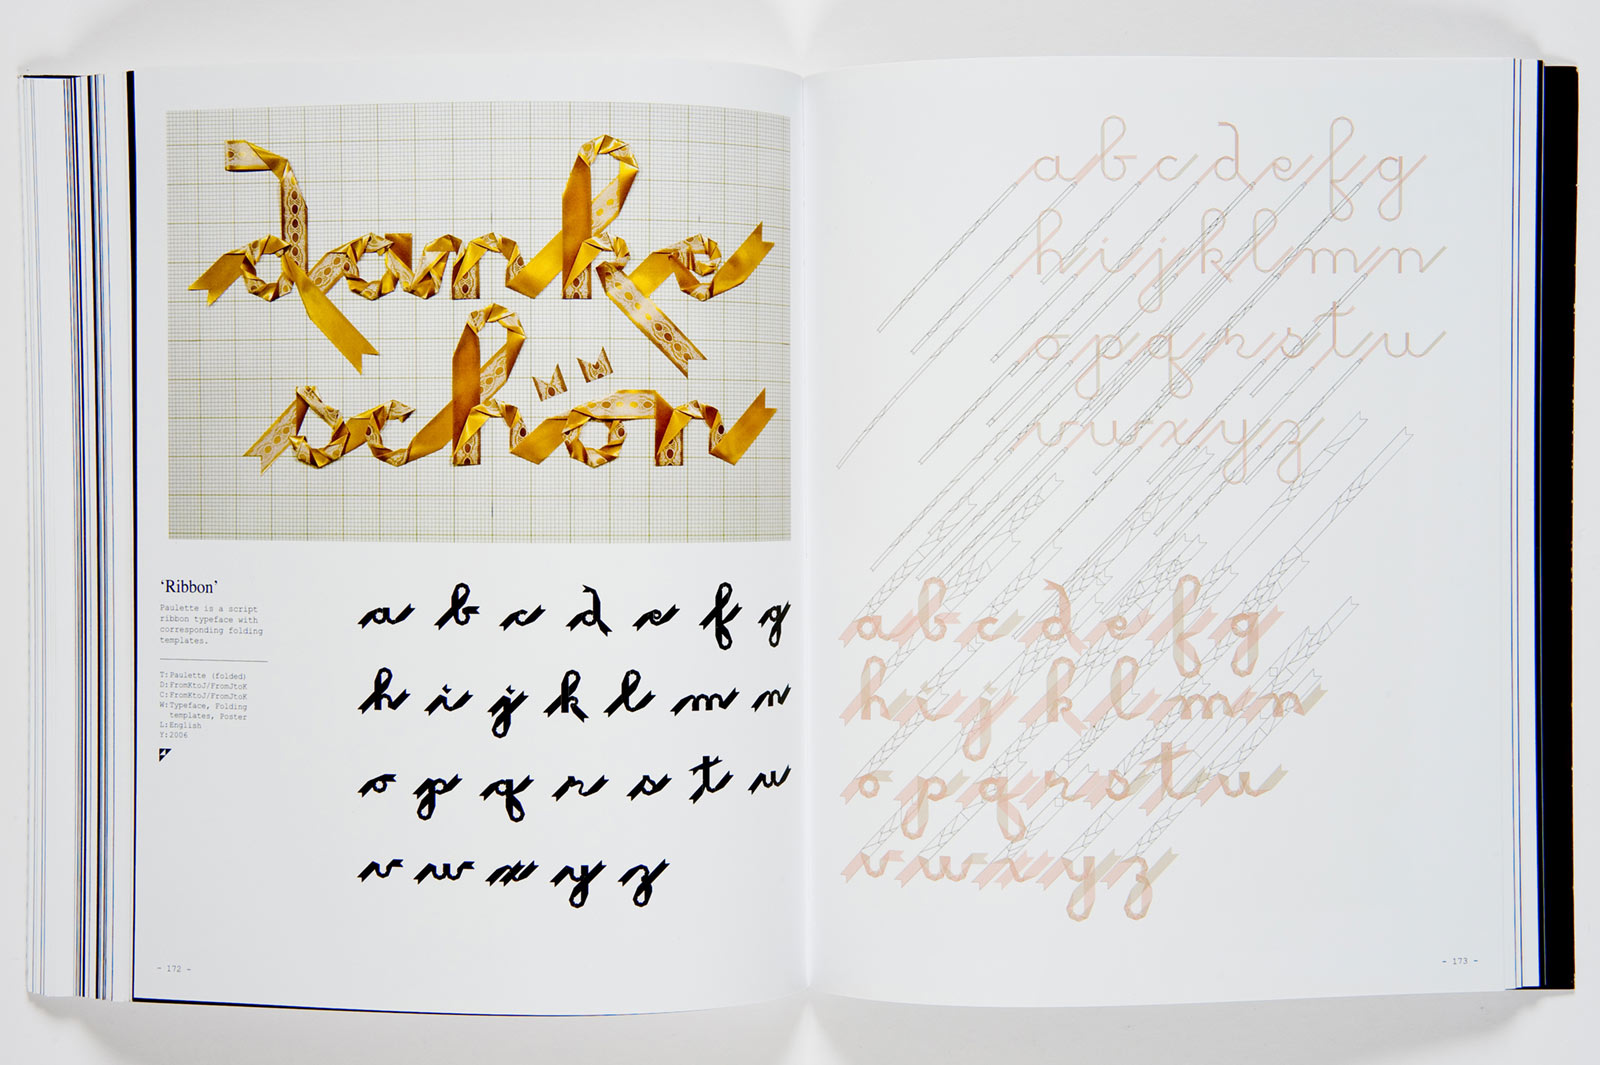 danke
schön
'Ribbon'
Paulette is a script
ribbon typeface with
corresponding folding
templates.
T:Paulette (folded)
D:FromKtoJ/FromJtoK
C:FromKtoJ/FromJtoK
W:Typeface, Folding
templates, Poster
L:English
Y:2006
a b c d e f g
h i j k l m n
o p q r s t u
v w x y z
- 172 -
abcdefg
hijklmn
opqrstu
vwxyz
abcdefg
hijklmn
opqrstu
vwxyz
- 173 -